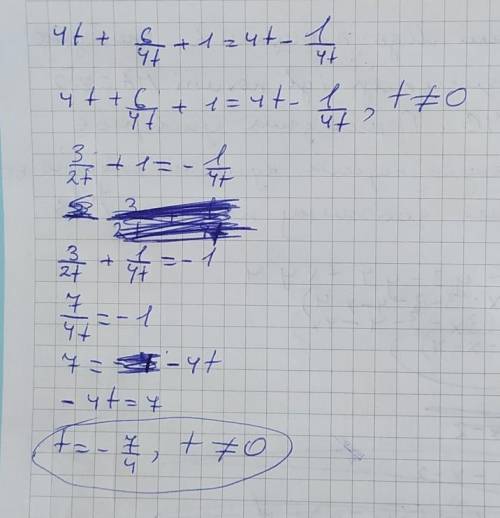 4t + 6/4t + 1 = 4t - 1/4t
4t + 6/4t + 1 = 4t - 1/4t, t ≠ 0
3/2t + 1 = - 1/4t
3/2t + 1/4t = - 1
7/4t = - 1
7 = - 4t
- 4t = 7
t = - 7/4, t ≠ 0